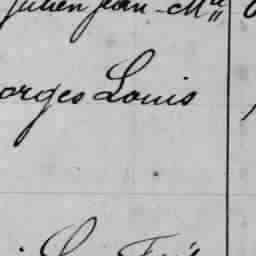 Julien Jean-Mie
orges Louis